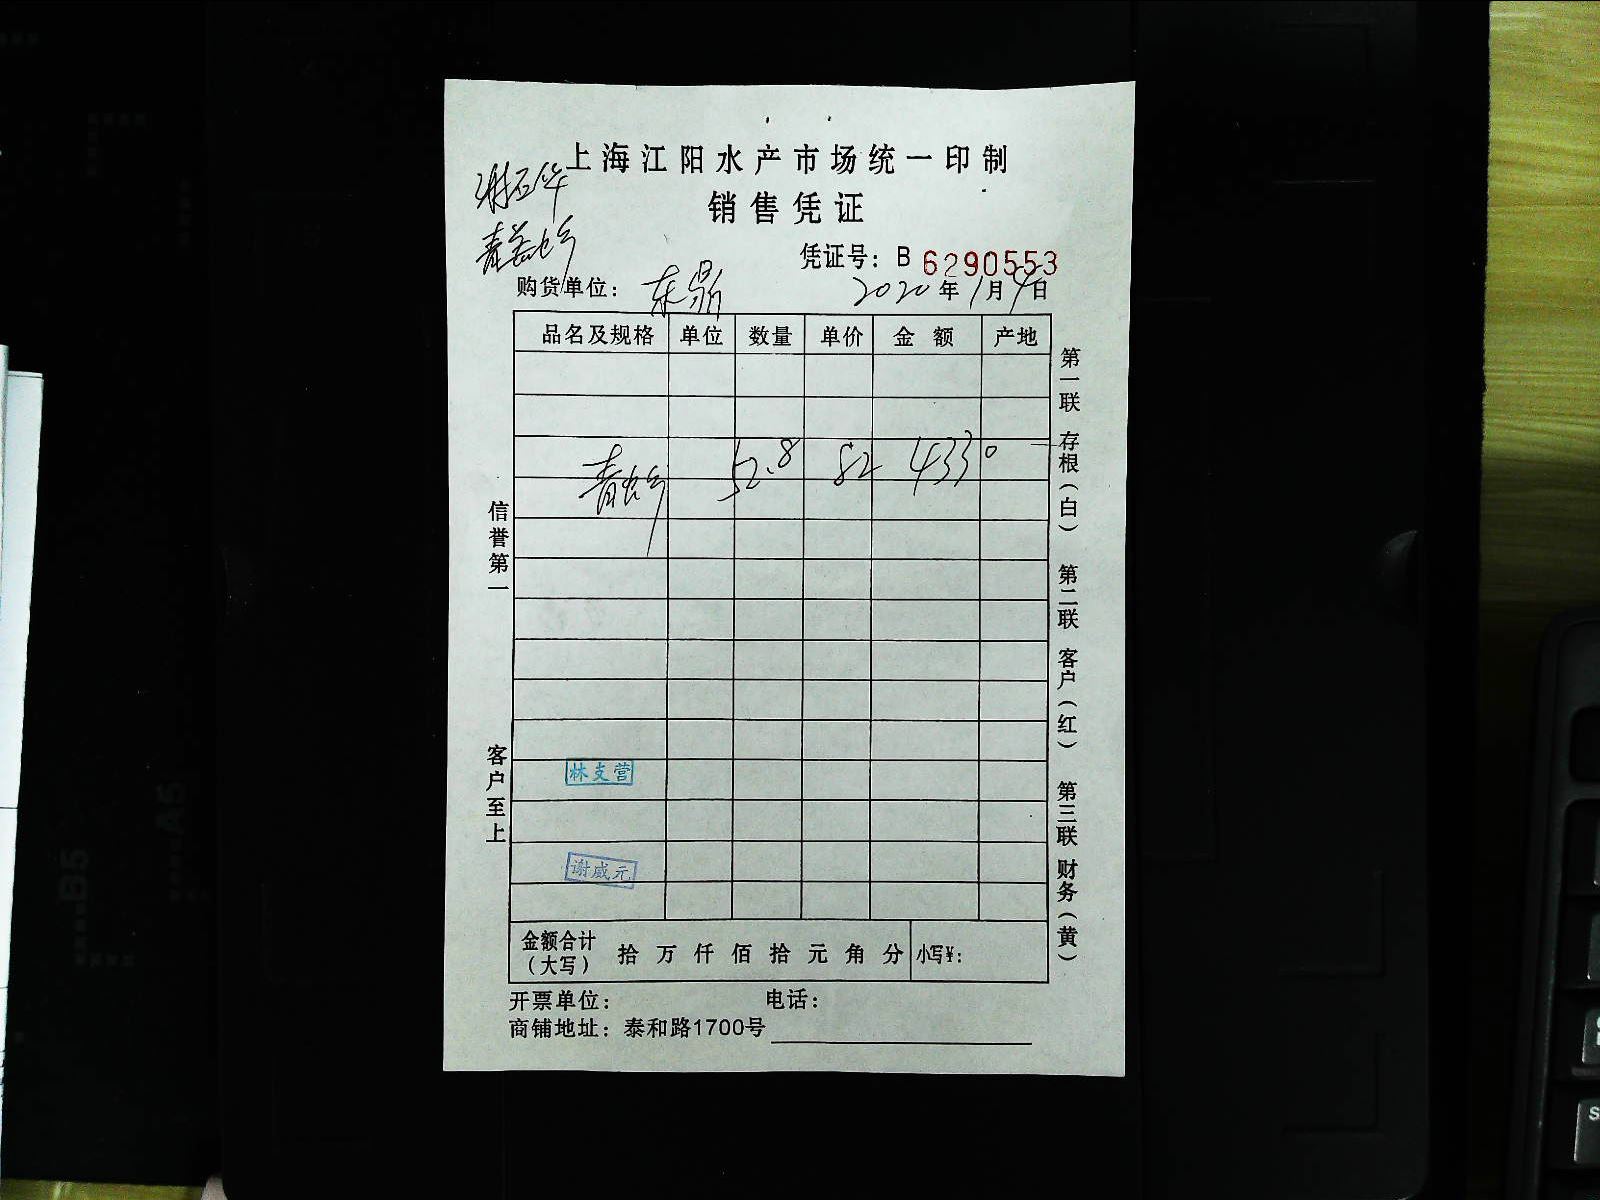 上海江阳水产市场统一印制
销售凭证
凭证号：B 6290553
购货单位：东鼎 2020年1月4日
品名及规格 单位 数量 单价 金额 产地
52.8 82 4330
信誉第一
客户至上
林支营
谢咸元
第一联 存根（白） 第二联 客户（红） 第三联 财务（黄）
金额合计（大写） 拾 万 仟 佰 拾 元 角 分 小写¥：
开票单位： 电话：
商铺地址：泰和路1700号
B5
A5